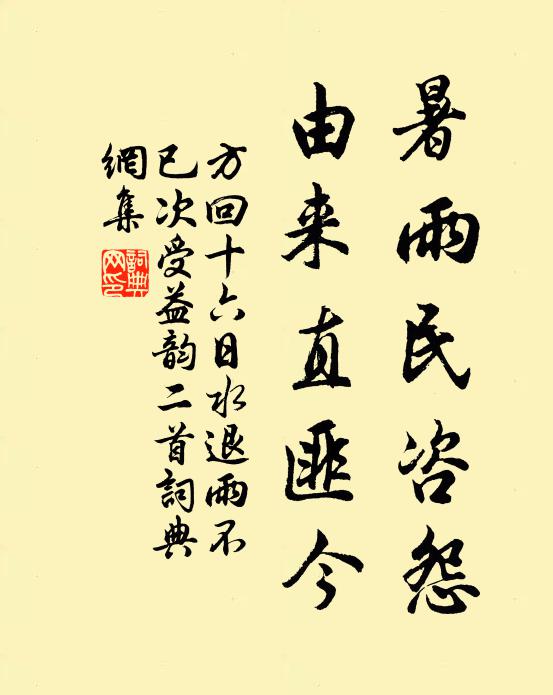 暑雨民咨怨
由来直匪今
方回十六日水退雨不
已次受益韵二首詞典
網集
詞典网印